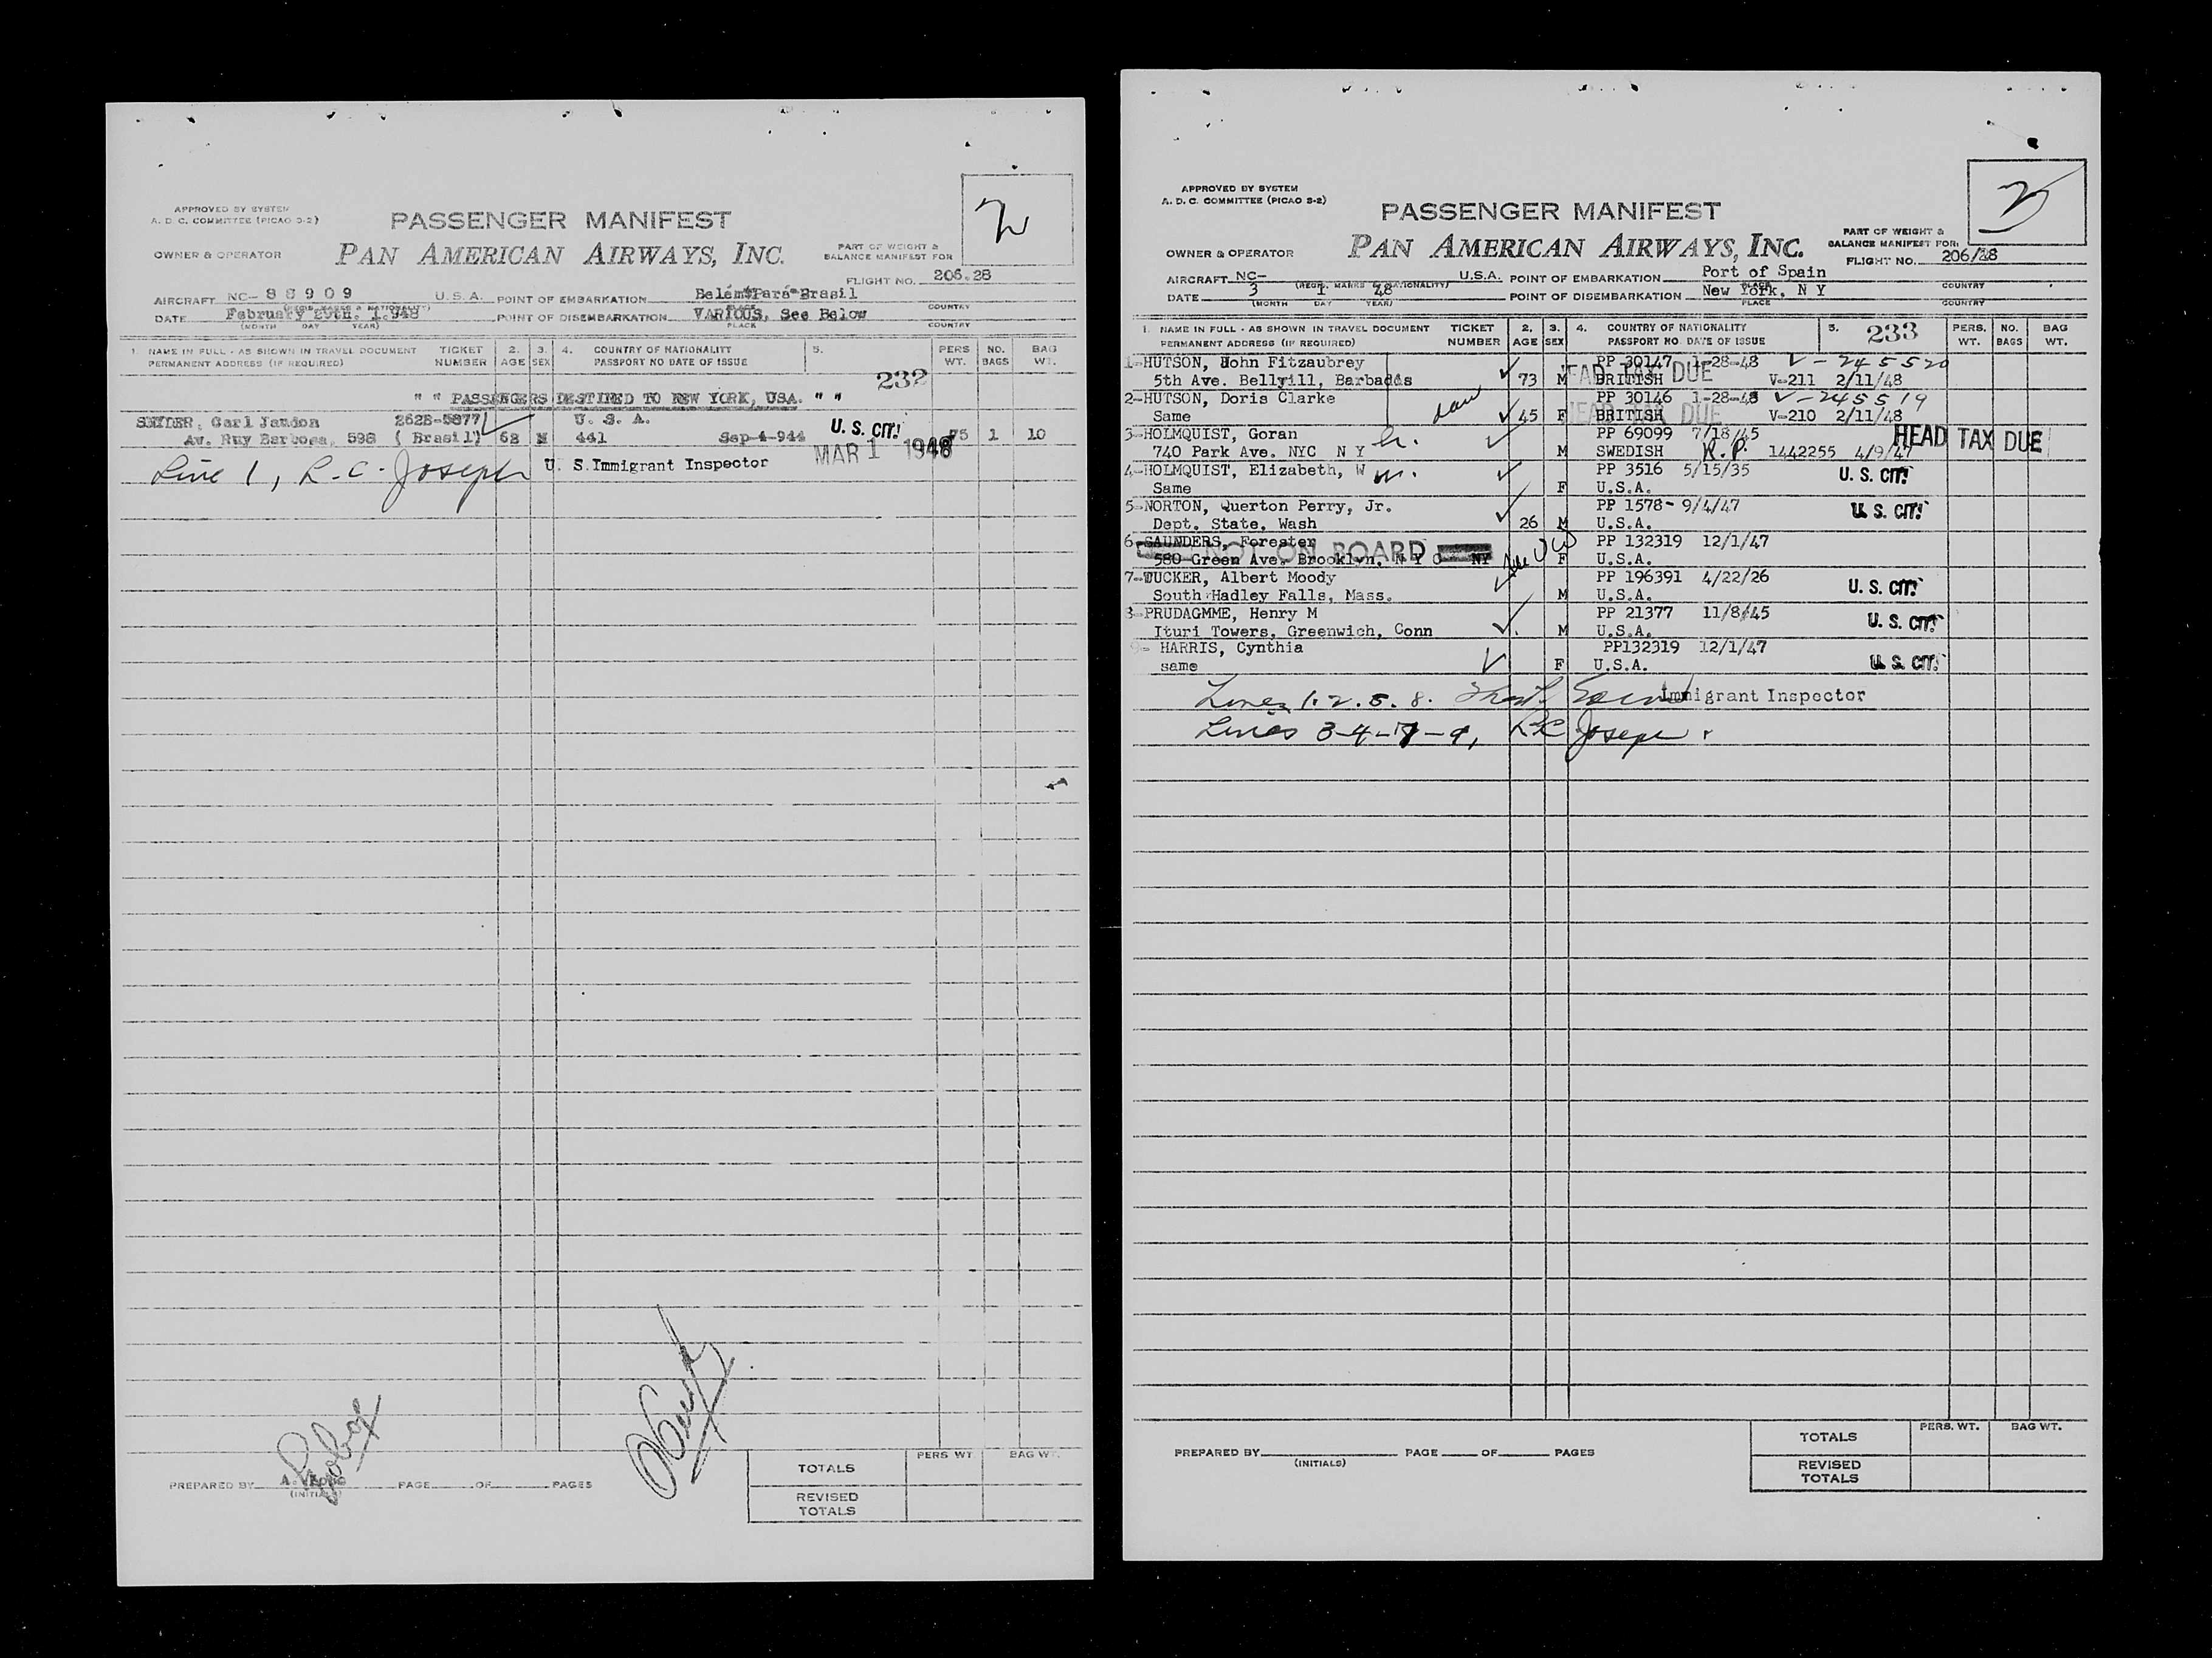 APPROVED BY SYSTEM
A. D. C. COMMITTEE (PICAO 3-2)
PASSENGER MANIFEST
2
OWNER & OPERATOR
PAN AMERICAN AIRWAYS, INC.
PART OF WEIGHT &
BALANCE MANIFEST FOR
FLIGHT NO. 206.28
AIRCRAFT NC- 88909 U.S.A. POINT OF EMBARKATION Belém Pará Brasil
DATE February 29th. 1.948 POINT OF DISEMBARKATION VARIOUS, See Below
(MONTH DAY YEAR) PLACE COUNTRY
1 NAME IN FULL - AS SHOWN IN TRAVEL DOCUMENT TICKET 2. 3. 4. COUNTRY OF NATIONALITY 5. PERS NO. BAG
PERMANENT ADDRESS (IF REQUIRED) NUMBER AGE SEX PASSPORT NO DATE OF ISSUE WT. BAGS WT.
232
" " PASSENGERS DESTINED TO NEW YORK, USA. " "
SNYDER, Carl Jaudon 262B-5877 U. S. A. U. S. CIT!
Av. Ruy Barbosa, 598 ( Brasil) 68 M 441 Sep-4-944 75 1 10
MAR 1 1948
Line 1, R. C. Joseph U. S. Immigrant Inspector
PREPARED BY (INITIALS) PAGE OF PAGES
PERS WT BAG WT.
TOTALS
REVISED
TOTALS
APPROVED BY SYSTEM
A. D. C. COMMITTEE (PICAO 3-2)
PASSENGER MANIFEST
OWNER & OPERATOR
PAN AMERICAN AIRWAYS, INC.
PART OF WEIGHT &
BALANCE MANIFEST FOR:
FLIGHT NO. 206/28
AIRCRAFT NC- U.S.A. POINT OF EMBARKATION Port of Spain
(REGT. MARKS & NATIONALITY) PLACE COUNTRY
DATE 3 1 48 POINT OF DISEMBARKATION New York, N Y
(MONTH DAY YEAR) PLACE COUNTRY
1. NAME IN FULL - AS SHOWN IN TRAVEL DOCUMENT TICKET 2. 3. 4. COUNTRY OF NATIONALITY 5. 233 PERS. NO. BAG
PERMANENT ADDRESS (IF REQUIRED) NUMBER AGE SEX PASSPORT NO. DATE OF ISSUE WT. BAGS WT.
1-HUTSON, John Fitzaubrey PP 30147 1-28-48 V-245520
5th Ave. Bellyill, Barbados 73 M BRITISH HEAD TAX DUE V-211 2/11/48
2-HUTSON, Doris Clarke PP 30146 1-28-48 V-245519
Same 45 F BRITISH HEAD TAX DUE V-210 2/11/48
3-HOLMQUIST, Goran PP 69099 7/18/45 HEAD TAX DUE
740 Park Ave. NYC N Y M SWEDISH R.P. 1442255 4/9/47
4-HOLMQUIST, Elizabeth, W m. PP 3516 5/15/35 U. S. CIT!
Same F U.S.A.
5-NORTON, Querton Perry, Jr. PP 1578- 9/4/47 U. S. CIT!
Dept. State, Wash 26 M U.S.A.
6-SAUNDERS, Forester PP 132319 12/1/47
NOT ON BOARD
580 Green Ave. Brooklyn, N Y C NY F U.S.A.
7-TUCKER, Albert Moody PP 196391 4/22/26 U. S. CIT!
South Hadley Falls, Mass. M U.S.A.
8-PRUDAGMME, Henry M PP 21377 11/8/45 U. S. CIT!
Ituri Towers, Greenwich, Conn M U.S.A.
9- HARRIS, Cynthia PP132319 12/1/47
same F U.S.A. U. S. CIT!
Lines 1. 2. 5. 8. Immigrant Inspector
Lines 3-4-7-9, RC Joseph
PREPARED BY (INITIALS) PAGE OF PAGES
PERS. WT. BAG WT.
TOTALS
REVISED
TOTALS